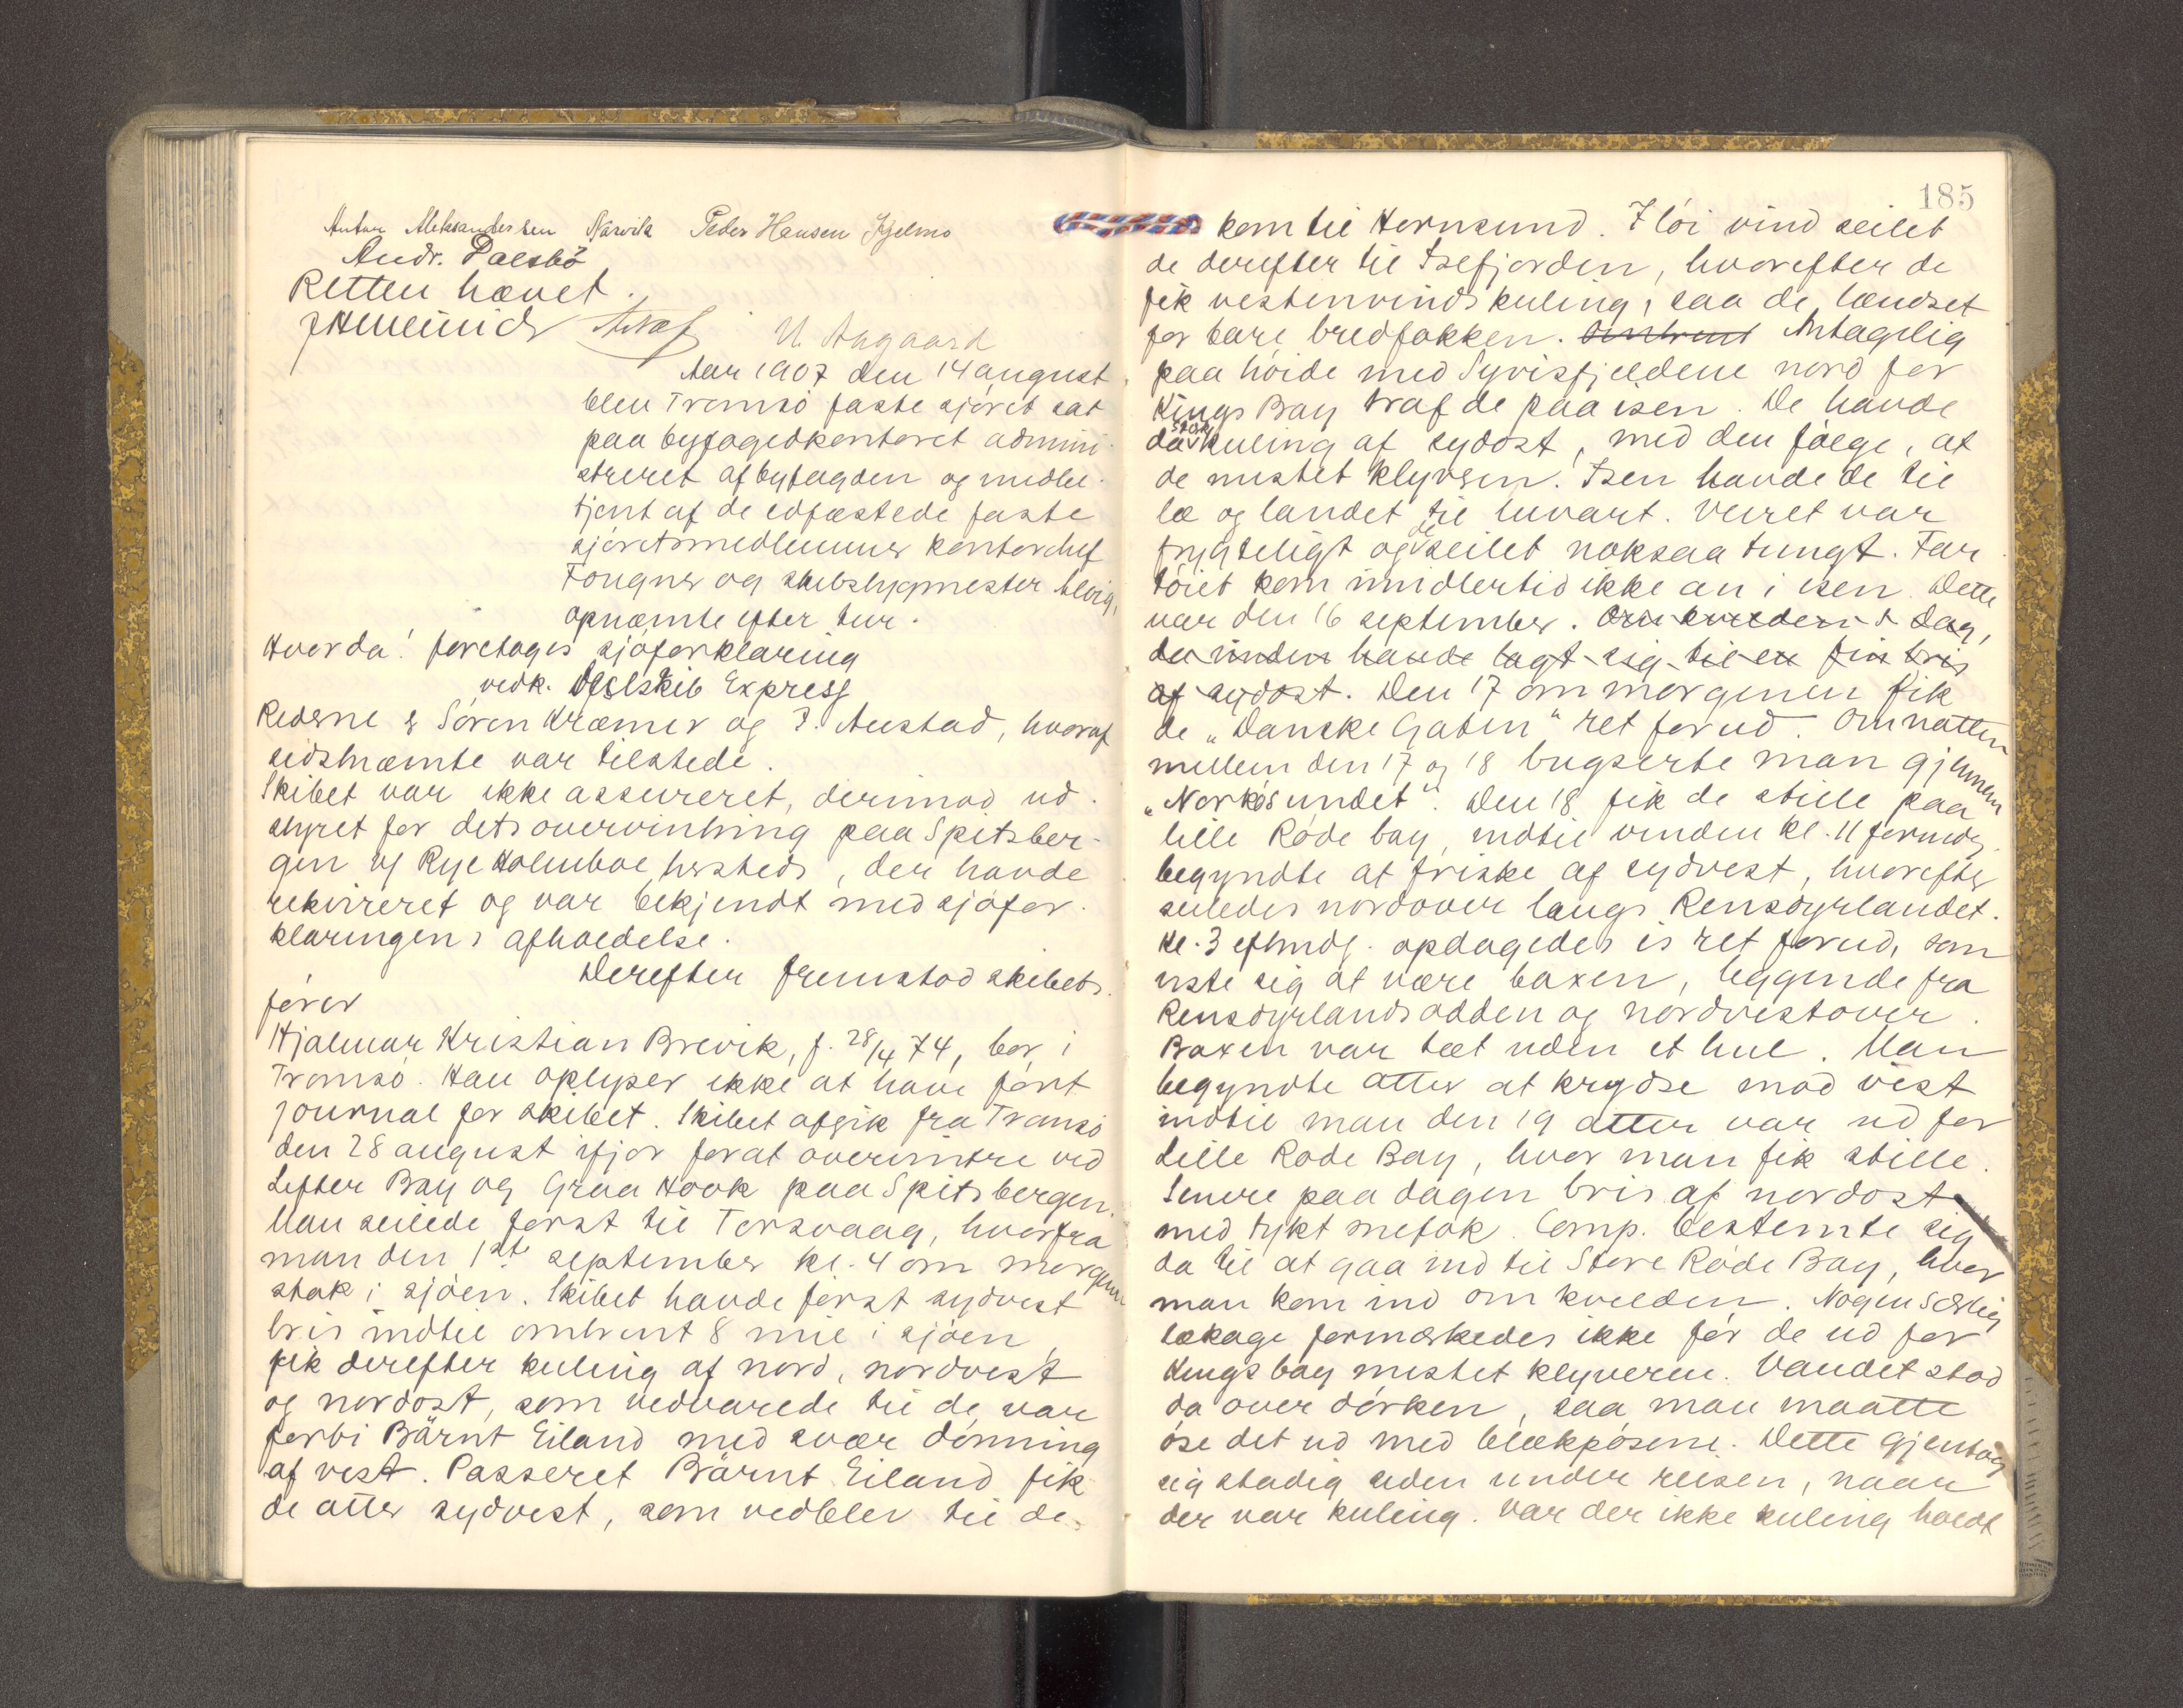 Anton Aleksandersen Näsvik Peder Hansen Kjelmo
Andr. Dalsbö
Retten hævet.
U. Aagaard
Aar 1907 den 14 august
blev Tromsö faste sjöret sat
paa byfogedkontoret admini-
streret af byfogden og medbe-
tjent af de edfæstede faste
sjöretsmedlemmer kontorchef
Fougner og skibsbygmester
opnævnte efter tur.
Hvorda! foretoges sjöforklaring
vedk. Dækskib Express
Rederne er Sören Kræmer og J. Austad, hvoraf
sidstnævnte var tilstede.
Skibet var ikke assureret, derimod ud-
styret for dets overvintring paa Spitsber-
gen af Rye Holmboe hersteds, der havde
rekvireret og var bekjendt med sjöfor-
klaringens afholdelse.
Derefter fremstod skibets
förer
Hjalmar Kristian Brevik, f. 28/4 74, bor i
Tromsö. Han oplyser ikke at have fört
journal for skibet. Skibet afgik fra Tromsö
den 28 august ifjor forat overvintre ved
Lifter Bay og Graa Hook paa Spitsbergen.
Man seilede först til Torsvaag, hvorfra
man den 1ste september kl. 4 om morgenen
stak i sjöen. Skibet havde först sydvest
bris indtil omtrent 8 mil i sjöen,
fik derefter kuling af nord, nordvest
og nordost, som vedvarede til de var
forbi Bärnt Eiland med svær dönning
af vest. Passeret Bärnt Eiland fik
de atter sydvest, som vedblev til de
185
kom til Hornsund. I löi vind seilet
de derefter til Isefjorden, hvorefter de
fik vestenvinds kuling, saa de lændset
for bare bredfokken. Omtrent Antagelig
paa höide med Syvisfjeldene nord for
Kings Bay traf de paa isen. De havde
da stor kuling af sydost, med den fölge, at
de mistet klyveren. Isen havde de til
læ og landet til luvart. Veiret var
frygteligt og de seilet noksaa tungt. Far-
töiet kom imidlertid ikke an i isen. Dette
var den 16 september. Dag,
da vinden havde lagt sig til en fin bris
af sydost. Den 17 om morgenen fik
de „Danske Gaten“ ret forud. Om natten
mellem den 17 og 18 bugserte man gjennem
„Norkösundet“. Den 18 fik de stille paa
lille Röde bay, indtil vinden kl. 11 formdg.
begyndte at friske af sydvest, hvorefter
seiledes nordover langs Rensdyrlandet.
Kl. 3 eftmdg. opdagedes is ret forud, som
viste sig at være baxen, liggende fra
Rensdyrlandsodden og nordvestover.
Baxen var tæt uden et hul. Man
begyndte atter at krydse mod vest
indtil man den 19 atter var ud for
Lille Röde Bay, hvor man fik stille.
Senere paa dagen bris af nordost
med tykt snefok. Comp. bestemte sig
da til at gaa ind til Store Röde Bay, hvor
man kom ind om kvelden. Nogen særlig
lækage formærkedes ikke för de ud for
Kings bay mistet klyveren. Vandet stod
da over dörken, saa man maatte
öse det ud med blækpösene. Dette gjentog
sig stadig siden under reisen, naar
der var kuling. Var der ikke kuling holdt